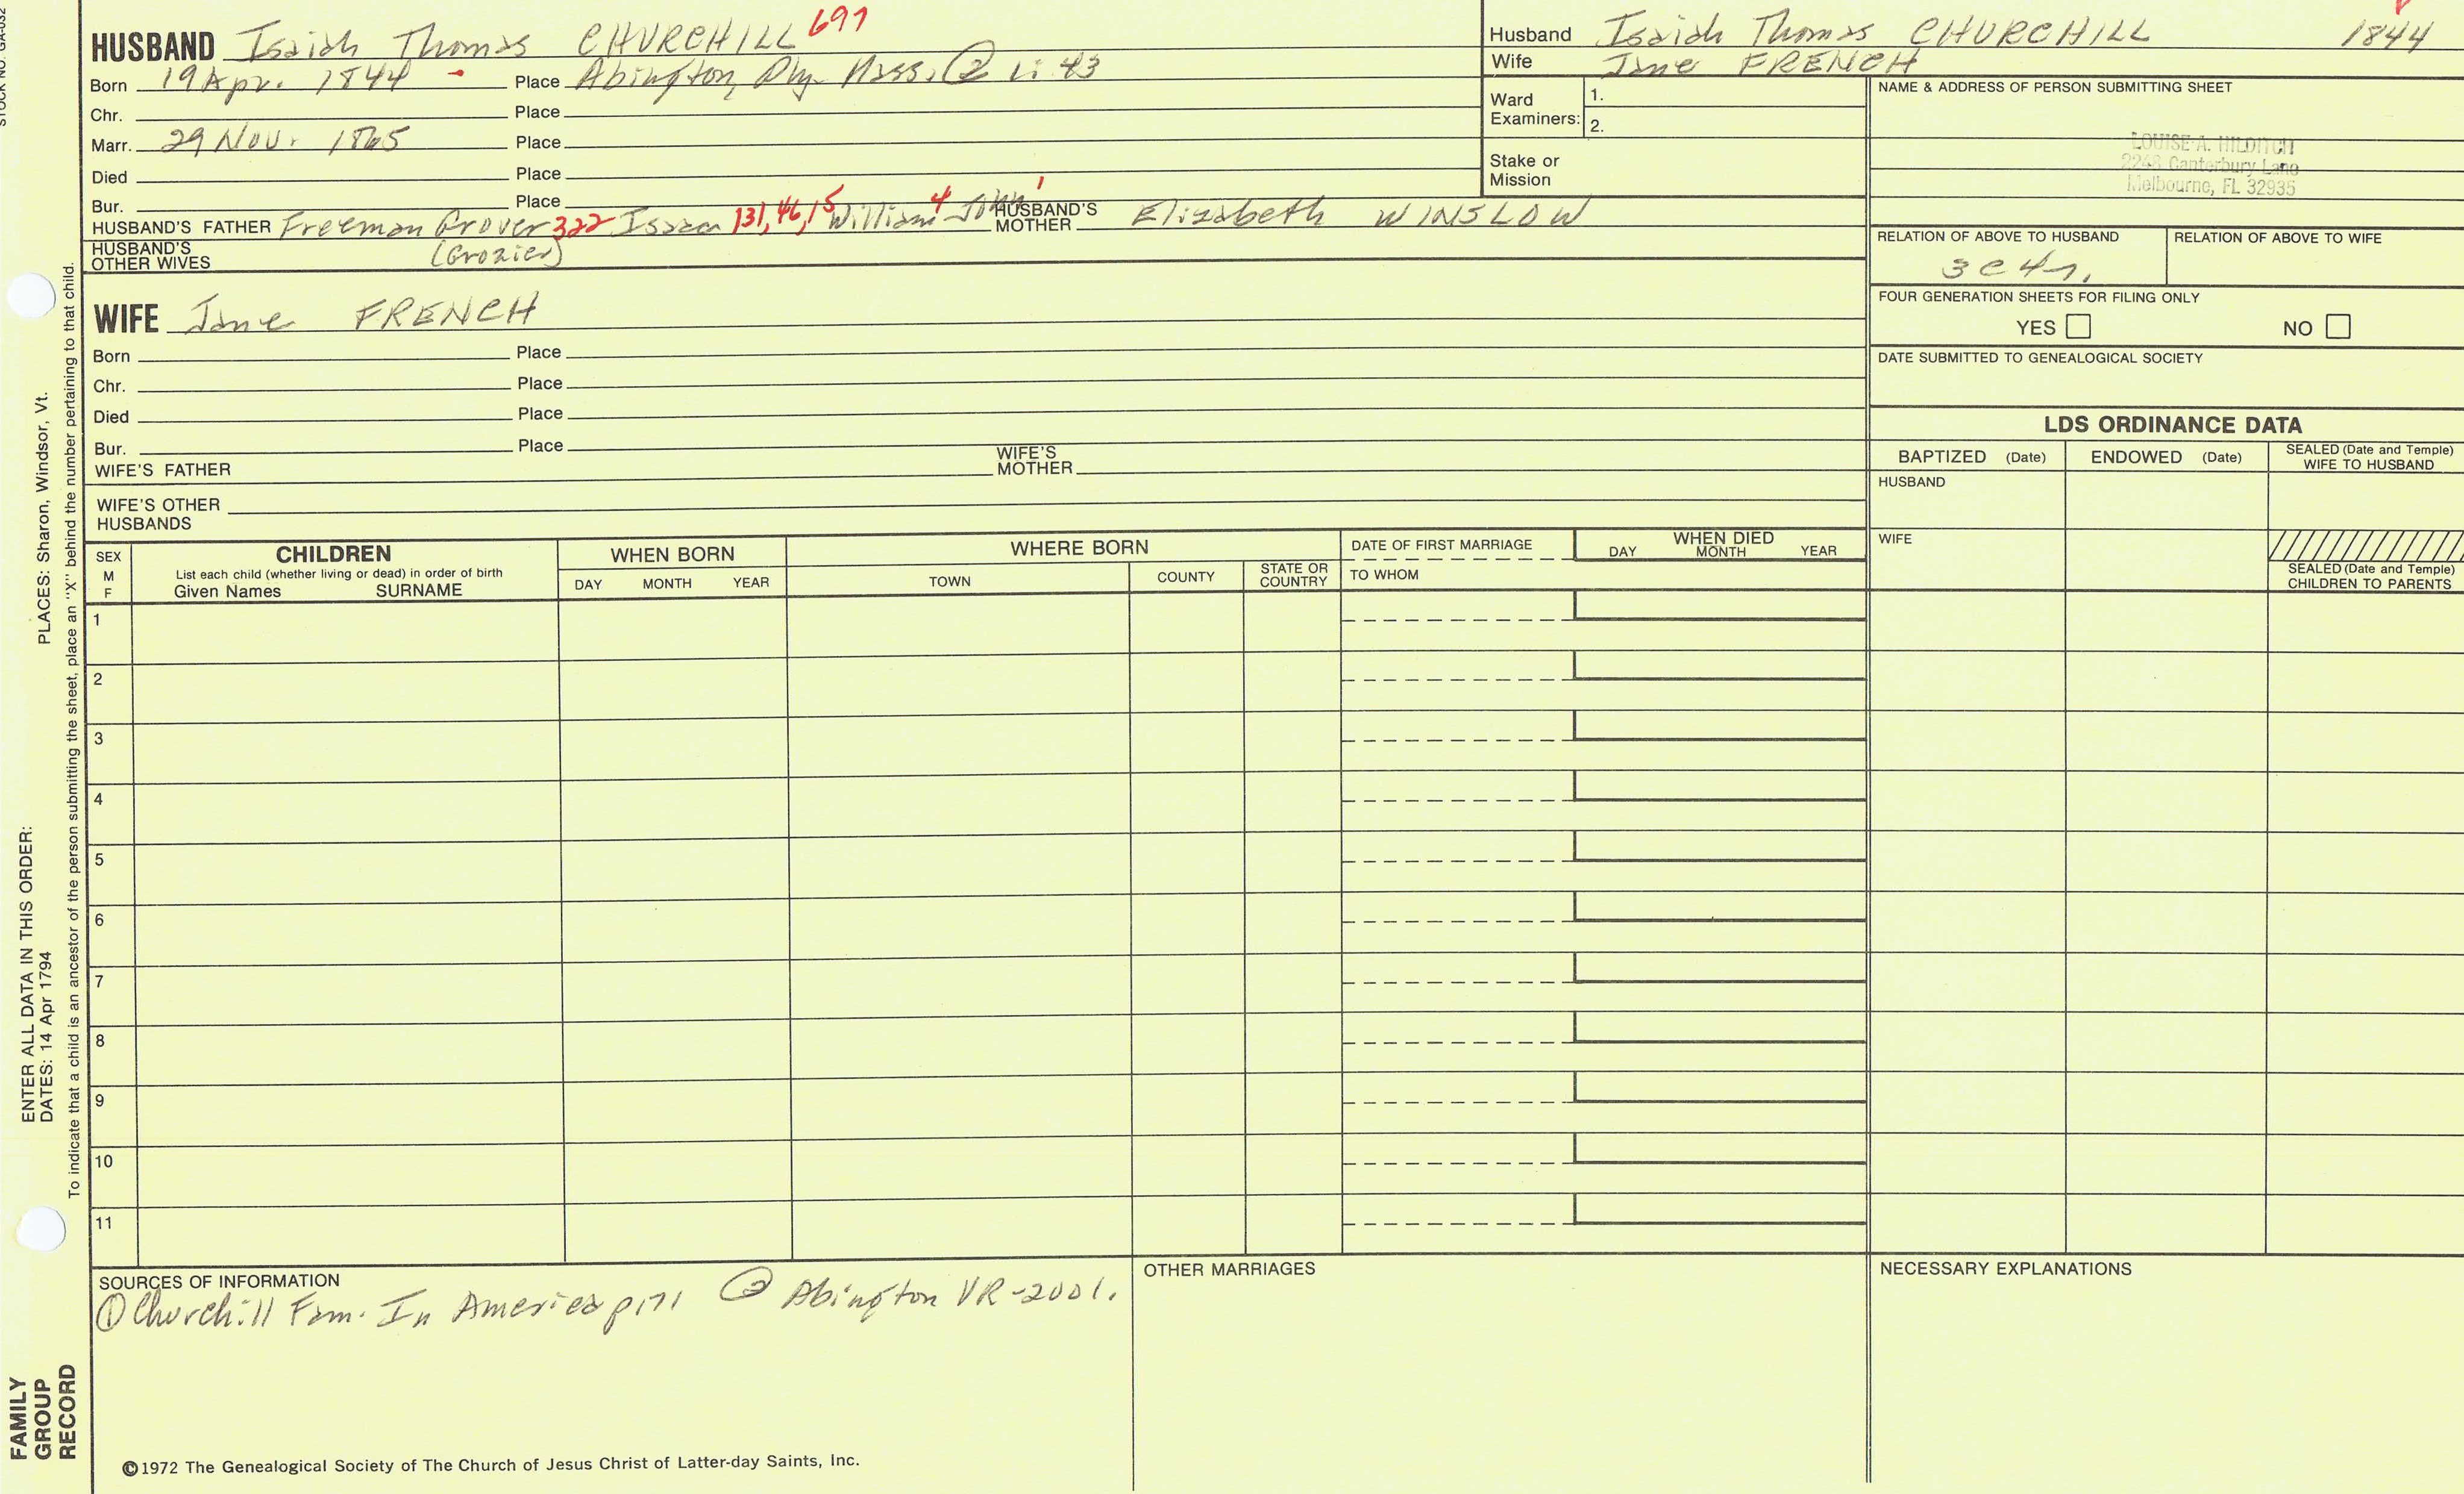 HUSBAND Isaiah Thomas CHURCHILL 697
Born 19 Apr. 1844 Place Abington, Ply. Mass. ② Li 43
Chr. Place
Marr. 29 Nov. 1865 Place
Died Place
Bur. Place
HUSBAND'S FATHER Freeman Grover 322 Isaac 131, 46, 15 William 4 John 1 HUSBAND'S MOTHER Elizabeth WINSLOW
HUSBAND'S OTHER WIVES (Grozier)
WIFE Jane FRENCH
Born Place
Chr. Place
Died Place
Bur. Place
WIFE'S FATHER WIFE'S MOTHER
WIFE'S OTHER HUSBANDS
Husband Isaiah Thomas CHURCHILL 1844
Wife Jane FRENCH
Ward Examiners: 1.
2.
Stake or Mission
NAME & ADDRESS OF PERSON SUBMITTING SHEET
LOUISE A. HILDITCH
2248 Canterbury Lane
Melbourne, FL 32935
RELATION OF ABOVE TO HUSBAND RELATION OF ABOVE TO WIFE
3c4r.
FOUR GENERATION SHEETS FOR FILING ONLY
YES NO
DATE SUBMITTED TO GENEALOGICAL SOCIETY
LDS ORDINANCE DATA
BAPTIZED (Date) ENDOWED (Date) SEALED (Date and Temple) WIFE TO HUSBAND
HUSBAND
WIFE
SEALED (Date and Temple) CHILDREN TO PARENTS
SEX M F
CHILDREN
List each child (whether living or dead) in order of birth
Given Names SURNAME
WHEN BORN
DAY MONTH YEAR
WHERE BORN
TOWN COUNTY STATE OR COUNTRY
DATE OF FIRST MARRIAGE
TO WHOM
WHEN DIED
DAY MONTH YEAR
1
2
3
4
5
6
7
8
9
10
11
SOURCES OF INFORMATION
① Churchill Fam. In America p171 ② Abington VR-2001.
OTHER MARRIAGES
NECESSARY EXPLANATIONS
©1972 The Genealogical Society of The Church of Jesus Christ of Latter-day Saints, Inc.
STOCK NO. GA-032
PLACES: Sharon, Windsor, Vt.
ENTER ALL DATA IN THIS ORDER:
DATES: 14 Apr 1794
To indicate that a child is an ancestor of the person submitting the sheet, place an "X" behind the number pertaining to that child.
FAMILY
GROUP
RECORD